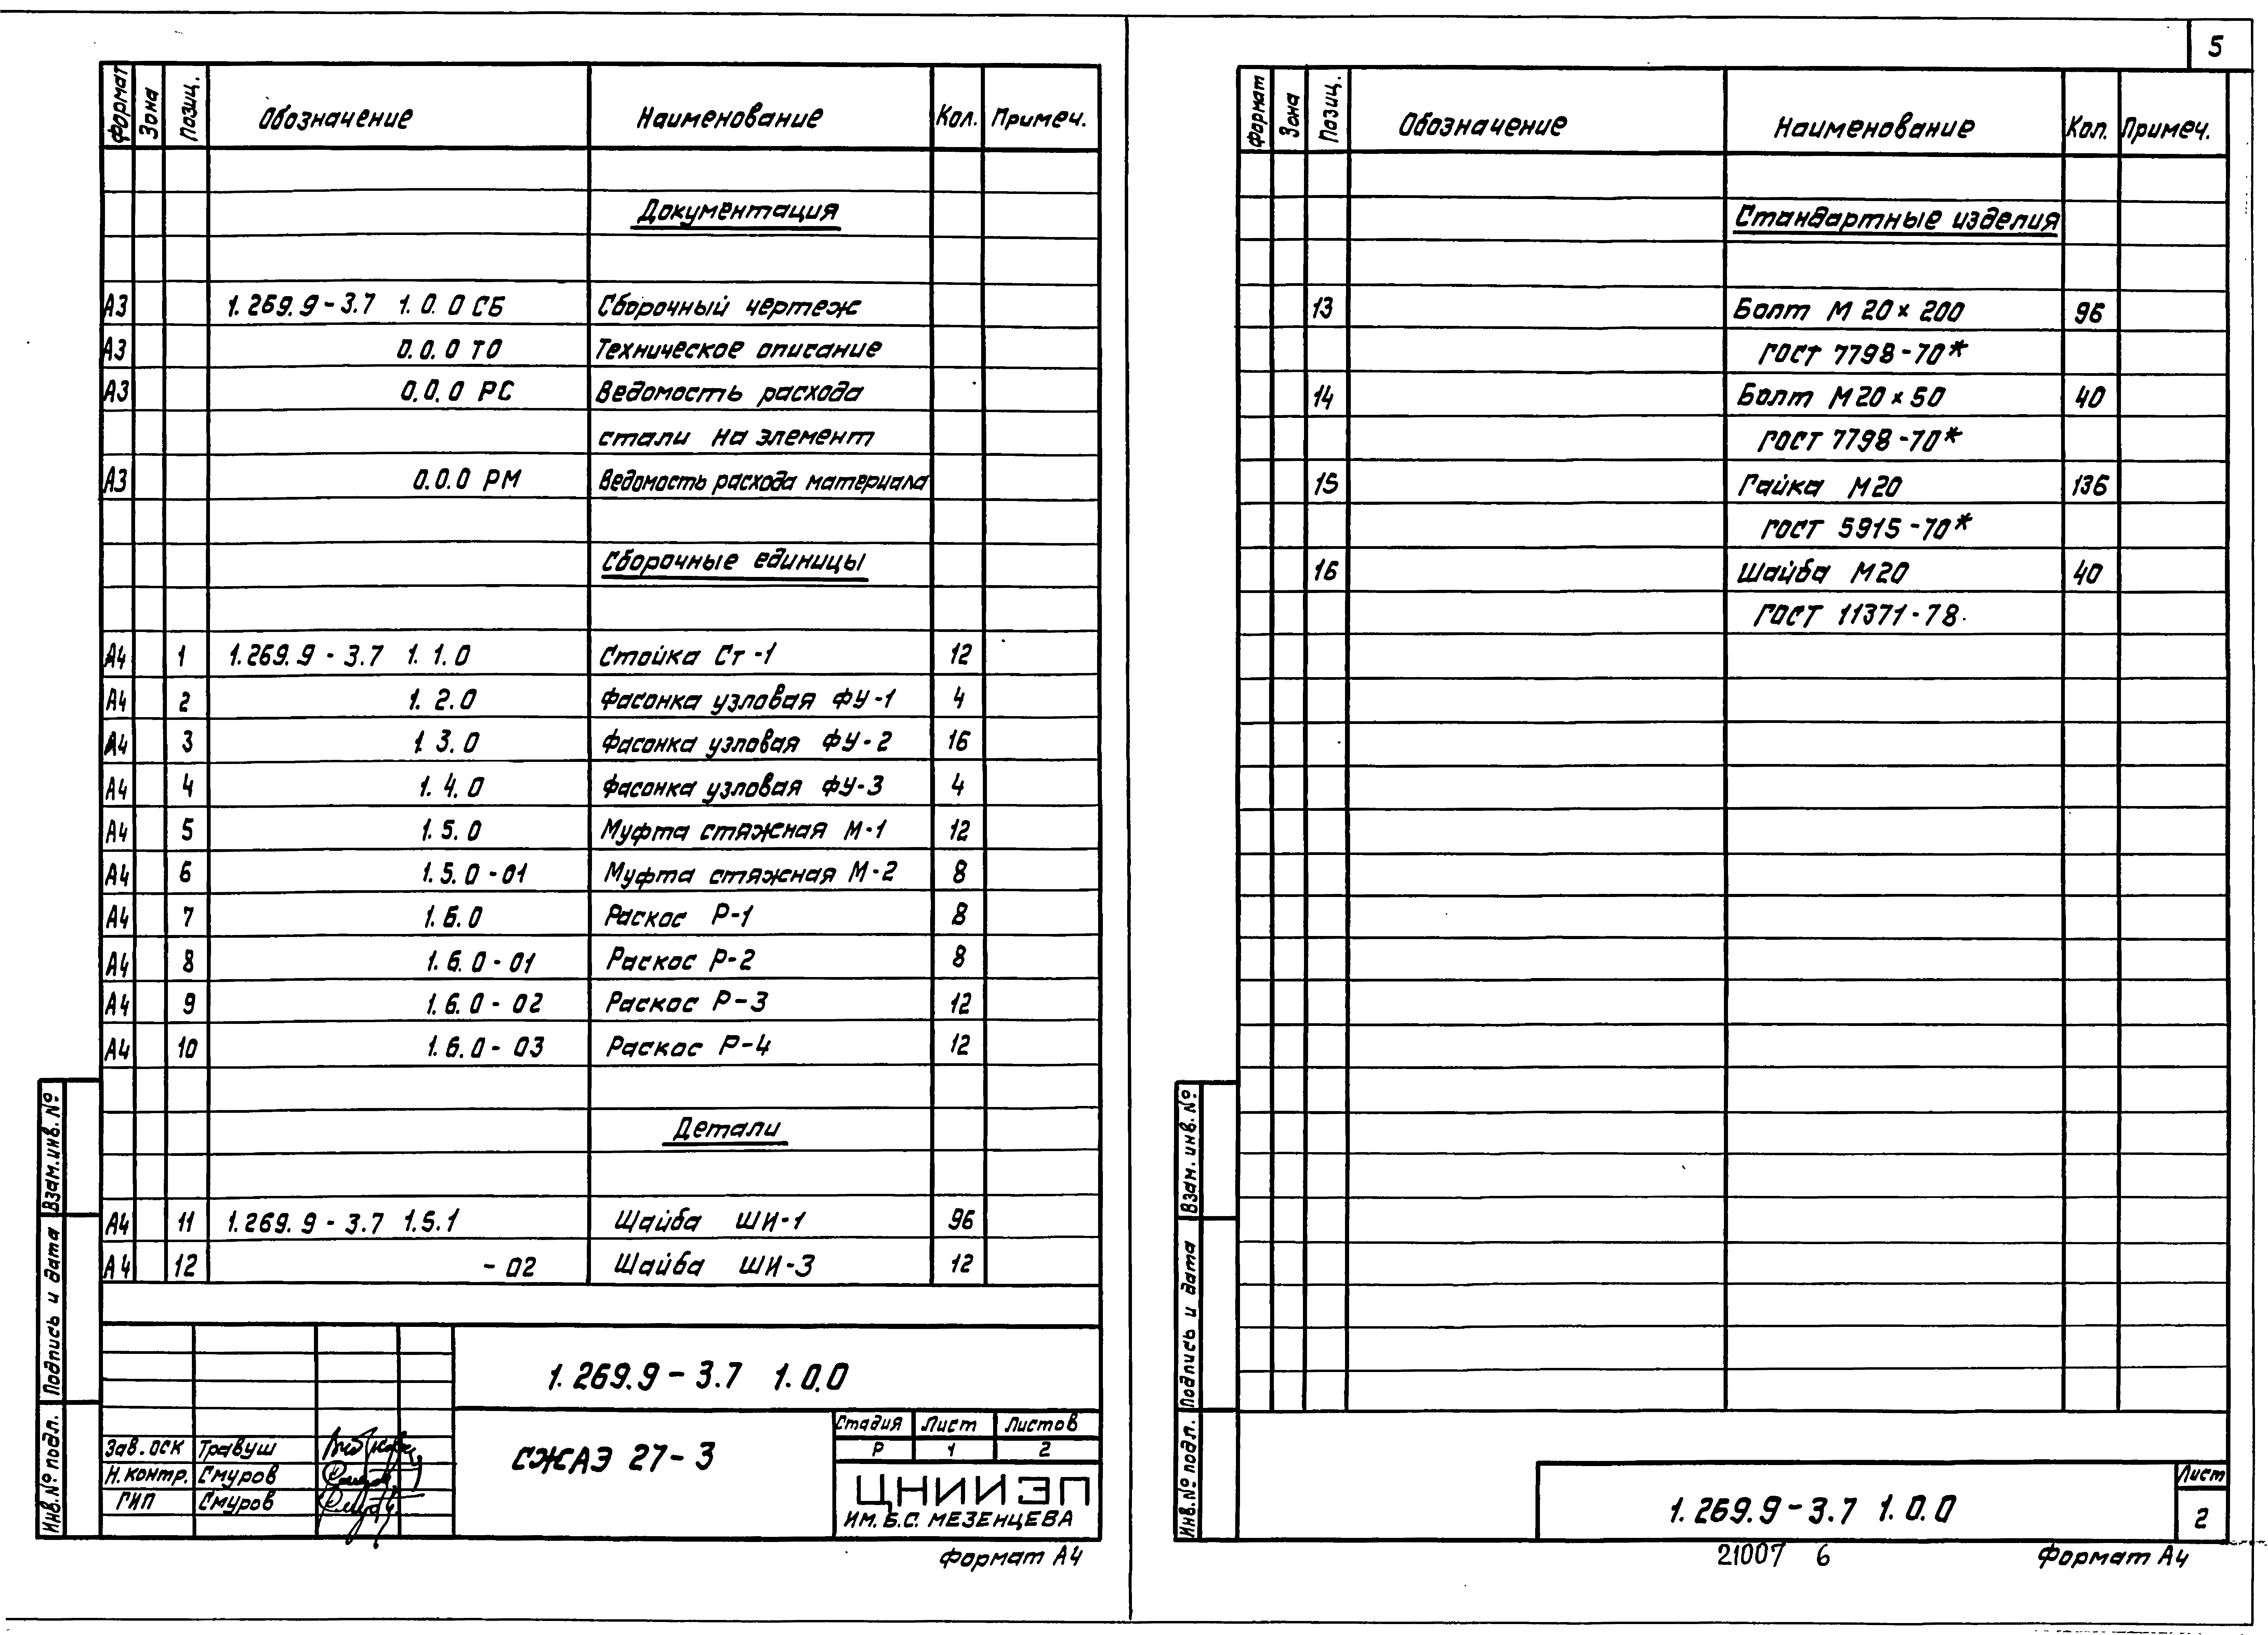 Формат Зона Позиц. Обозначение Наименование Кол. Примеч.
Документация
А3 1.269.9-3.7 1.0.0 СБ Сборочный чертеж
А3 0.0.0 ТО Техническое описание
А3 0.0.0 РС Ведомость расхода
стали на элемент
А3 0.0.0 РМ Ведомость расхода материала
Сборочные единицы
А4 1 1.269.9-3.7 1.1.0 Стойка Ст-1 12
А4 2 1.2.0 Фасонка узловая ФУ-1 4
А4 3 1.3.0 Фасонка узловая ФУ-2 16
А4 4 1.4.0 Фасонка узловая ФУ-3 4
А4 5 1.5.0 Муфта стяжная М-1 12
А4 6 1.5.0-01 Муфта стяжная М-2 8
А4 7 1.6.0 Раскос Р-1 8
А4 8 1.6.0-01 Раскос Р-2 8
А4 9 1.6.0-02 Раскос Р-3 12
А4 10 1.6.0-03 Раскос Р-4 12
Детали
А4 11 1.269.9-3.7 1.5.1 Шайба ШИ-1 96
А4 12 -02 Шайба ШИ-3 12
Взам.инв.№
Подпись и дата
Инв.№ подл.
1.269.9-3.7 1.0.0
Зав.ОСК Травуш
Н.контр. Смуров
ГИП Смуров
СЖАЭ 27-3
Стадия Лист Листов
Р 1 2
ЦНИИЭП
ИМ. Б.С. МЕЗЕНЦЕВА
Формат А4
5
Формат Зона Позиц. Обозначение Наименование Кол. Примеч.
Стандартные изделия
13 Болт М20×200 96
ГОСТ 7798-70*
14 Болт М20×50 40
ГОСТ 7798-70*
15 Гайка М20 136
ГОСТ 5915-70*
16 Шайба М20 40
ГОСТ 11371-78.
Взам.инв.№
Подпись и дата
Инв.№ подл.
1.269.9-3.7 1.0.0
Лист
2
21007 6
Формат А4